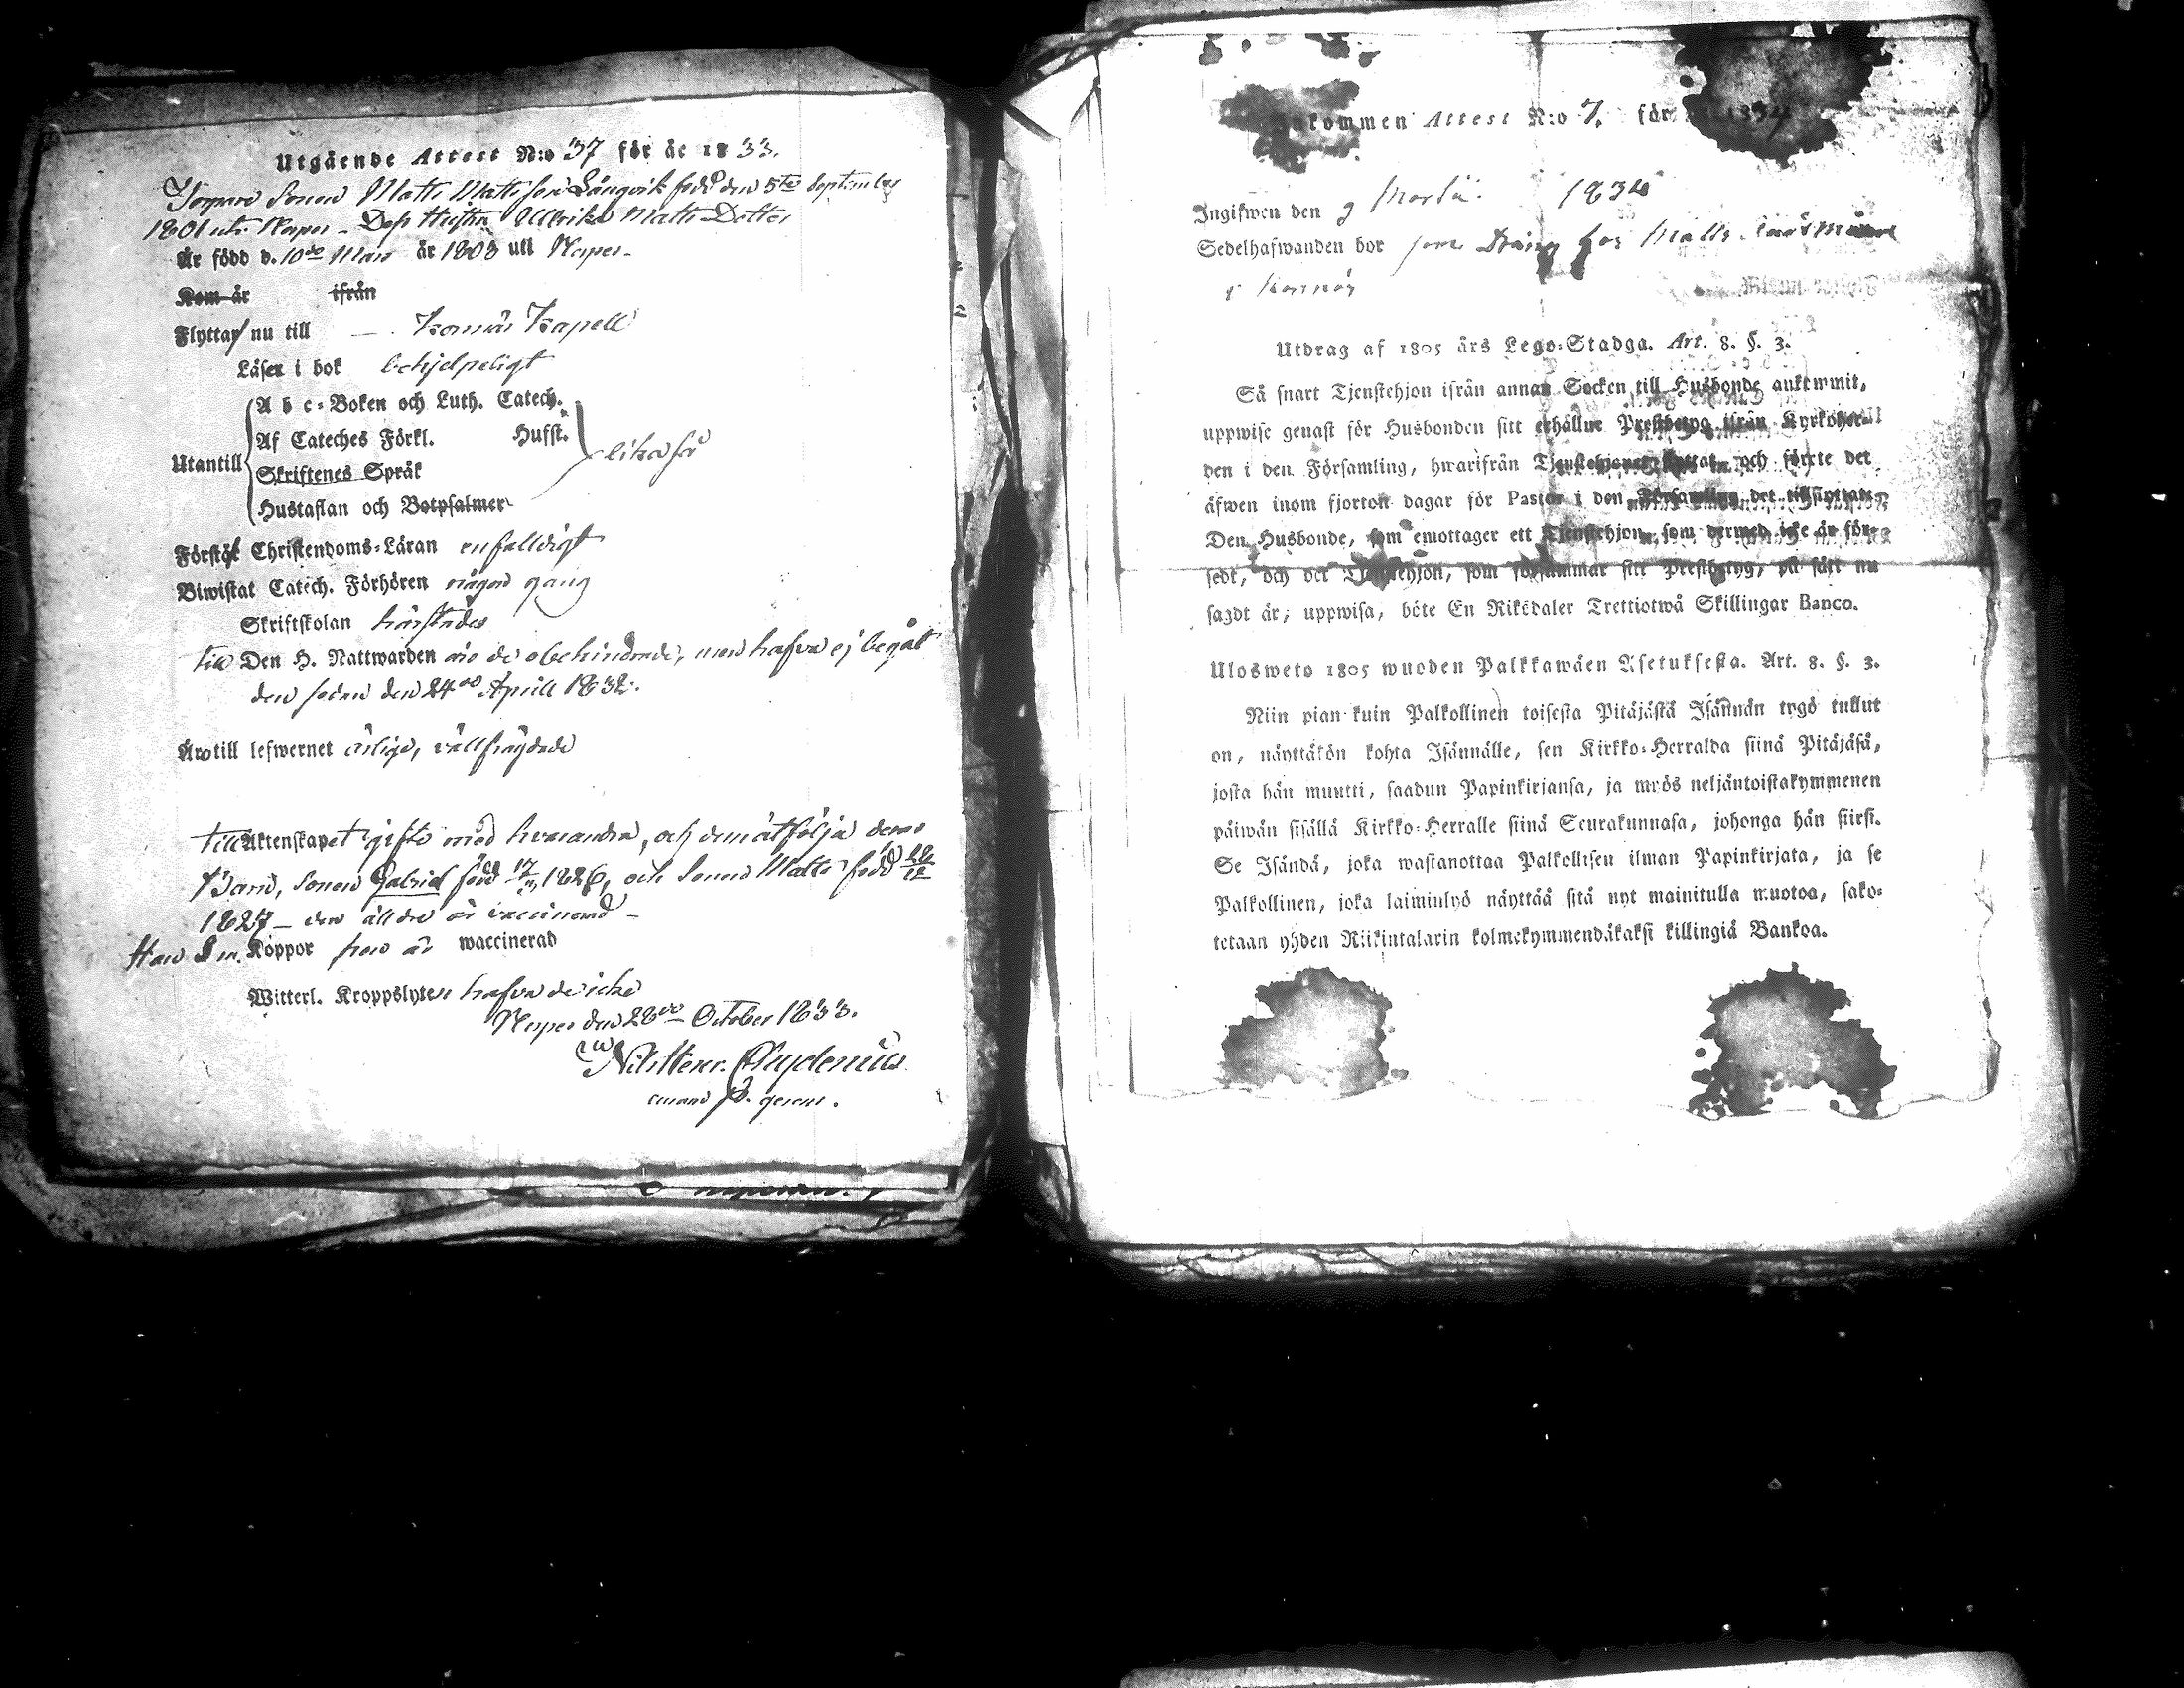 Utgående Attest N:o 37 för år 1833.
Torpare Sonen Matts Mattsson Långvik född den 5te September
1801 uti Kerpo – Dess Hustru Ulrika Matts Dotter
Är född d. 10de Mars år 1803 uti
Kom år ifrån
Flytta nu till Kapell
Läser i bok behjelpeligt
A b c-Boken och Luth. Catech.
Af Cateches Förkl. Husst.
Utantill
Skriftenes Språk
lika så
Hustaflan och Botpsalmer
Förstå Christendoms-Läran enfalldigt
Biwistat Catech. Förhören någon gång
Skriftskolan
till Den H. Nattwarden äro de obehindrade, men hafva ej begått
den sedan den 24de Aprill 1832.
Äro till lefwernet ärlige, vällfrägdade
till Äktenskapet gifte med hvarandra, och dem åtfölja deras
Barn, Sonen Gabriel född 17/ 1826, och Sonen Matts född
1827 – den älldre är vaccinerad –
Han Koppor hon är waccinerad
Witterl. Kroppslyten hafva de icke
den 28de October 1833.
Inkommen Attest N:o 7. för 1834
Ingifwen den 9 Martii 1834
Sedelhafwanden bor som Dräng hos Matts
i
Utdrag af 1805 års Lego-Stadga. Art. 8. §. 3.
Så snart Tjenstehjon ifrån annan Socken till Husbonde ankommit,
uppwise genast för Husbonden sitt erhållne Prestbetyg ifrån Kyrkoher-
den i den Församling, hwarifrån Tjenstehjonet flyttat, och förete det
äfwen inom fjorton dagar för Pastor i den Församling det tillflyttat.
Den Husbonde, som emottager ett Tjenstehjon, som dermed icke är för-
sedt, och det Tjenstehjon, som försummar sitt Prestbetyg, på sätt nu
sagdt är, uppwisa, böte En Riksdaler Trettiotwå Skillingar Banco.
Ulosweto 1805 wuoden Palkkawäen Asetuksesta. Art. 8. §. 3.
Niin pian kuin Palkollinen toisesta Pitäjästä Isännän tygö tullut
on, näyttäkön kohta Isännälle, sen Kirkko-Herralda siinä Pitäjäsä,
josta hän muutti, saadun Papinkirjansa, ja myös neljäntoistakymmenen
päiwän sisällä Kirkko-Herralle siinä Seurakunnasa, johonga hän siirsi.
Se Isändä, joka wastanottaa Palkollisen ilman Papinkirjata, ja se
Palkollinen, joka laiminlyö näyttää sitä nyt mainitulla muotoa, sako-
tetaan yhden Riikintalarin kolmekymmendäkaksi killingiä Bankoa.